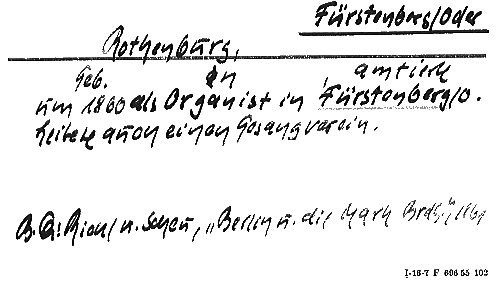 Fürstenberg/Oder
Rothenburg,
Geb. in , amtierte
um 1860 als Organist in Fürstenberg/O.
Leitete auch einen Gesangverein.
B. Qu: u. "Berlin u. die Mark Brdbg."
I-16-7 F 606 55 102